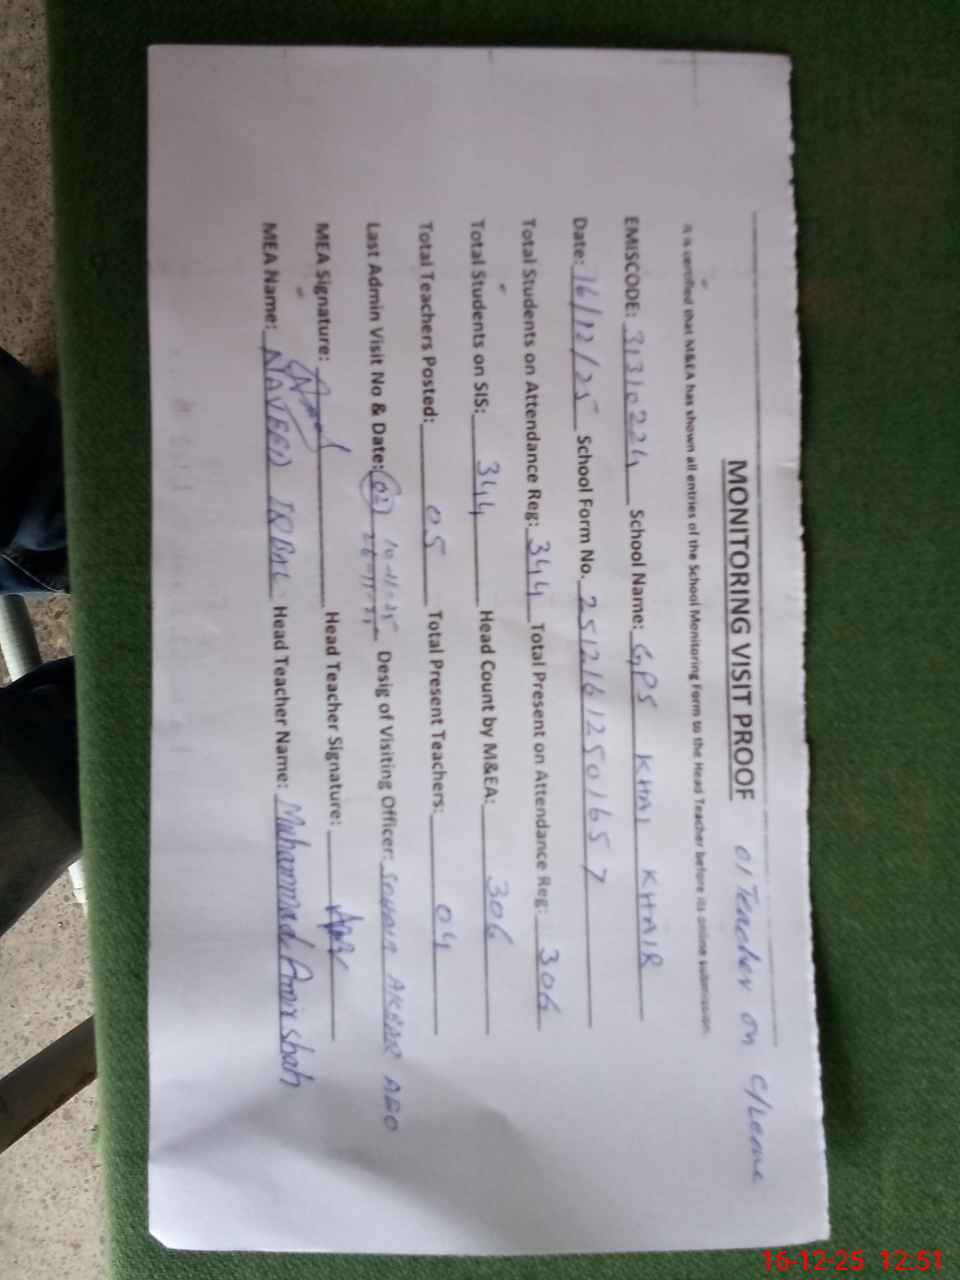 MONITORING VISIT PROOF 01 Teacher on C/Leave
It is certified that M&EA has shown all entries of the School Monitoring Form to the Head Teacher before its online submission.
EMISCODE: 31310224 School Name: GPS KHAI KHAIR
Date: 16/12/25 School Form No. 25121612501657
Total Students on Attendance Reg: 344 Total Present on Attendance Reg: 306
Total Students on SIS: 344 Head Count by M&EA: 306
Total Teachers Posted: 05 Total Present Teachers: 04
Last Admin Visit No & Date: 02 10-11-25 26-11-25 Desig of Visiting Officer: AKBAR AEO
MEA Signature: Head Teacher Signature:
MEA Name: NAVEED IQBAL Head Teacher Name: Muhammad Amir shah
16-12-25 12:51